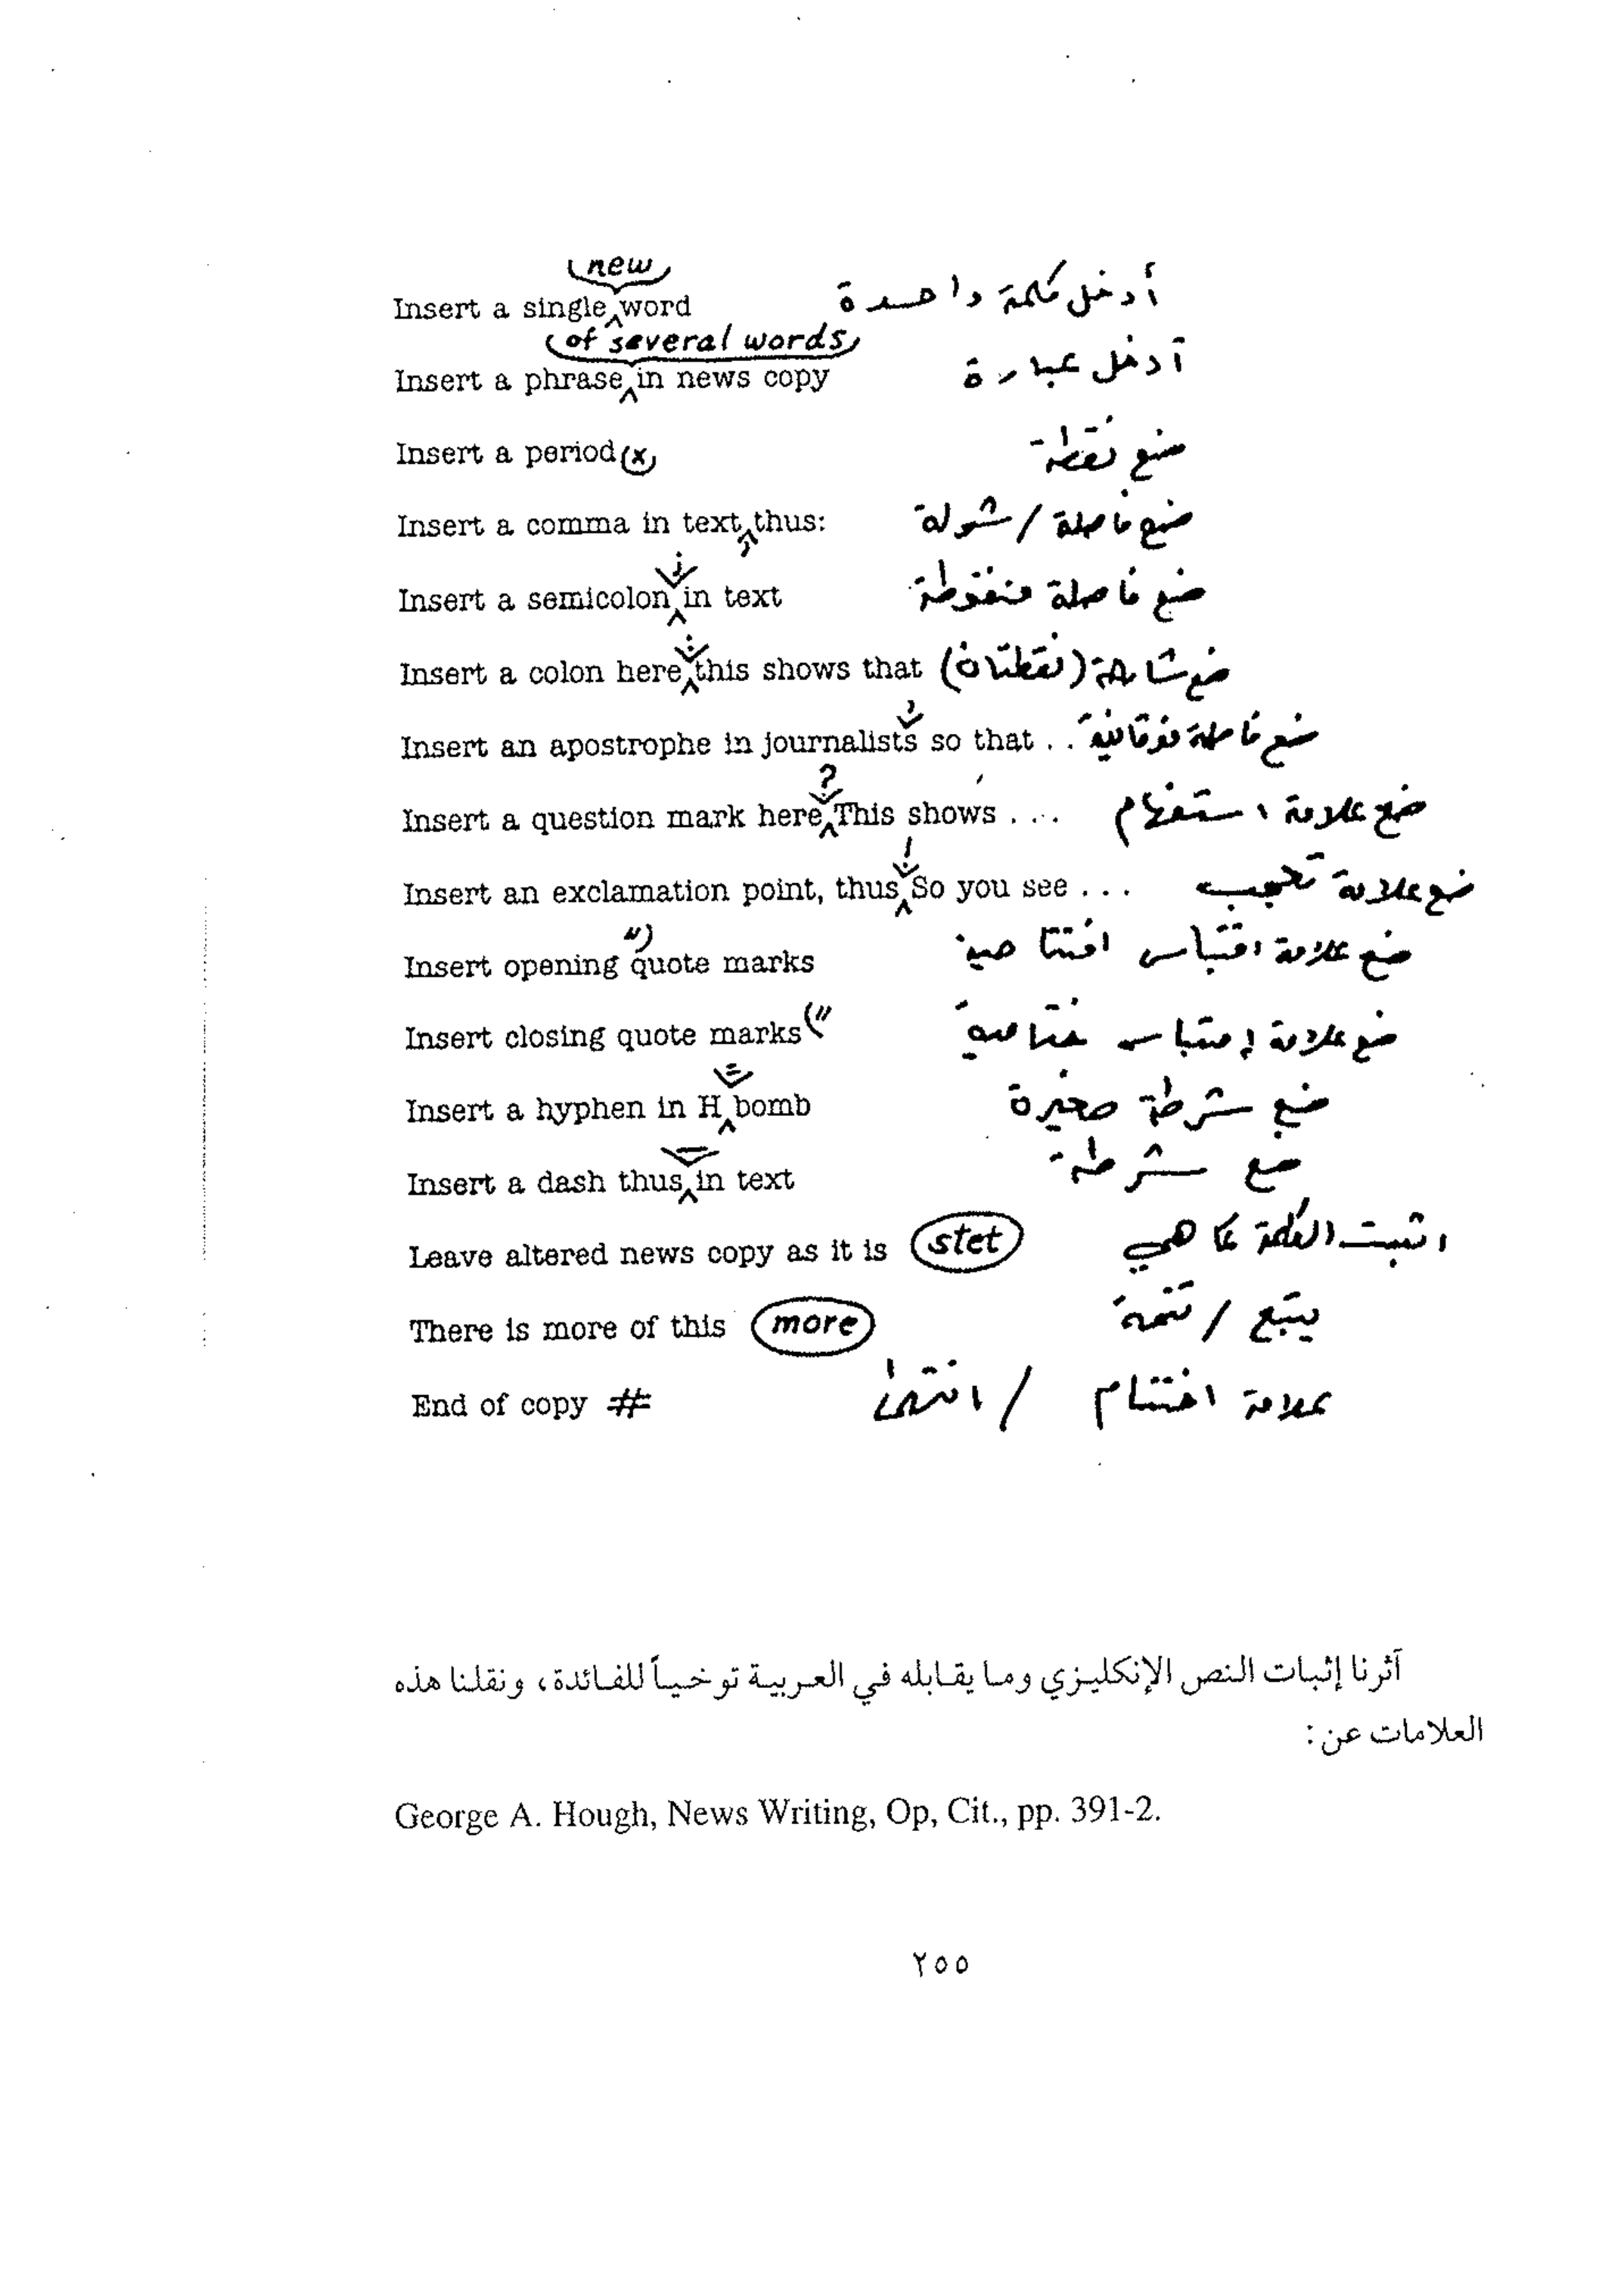 new
Insert a single word أدخل كلمة واحدة
of several words
Insert a phrase in news copy أدخل عبارة
Insert a period (x) ضع نقطة
Insert a comma in text, thus: ضع فاصلة / شولة
Insert a semicolon ; in text ضع فاصلة منقوطة
Insert a colon here : this shows that ضع شارحة (نقطتان)
Insert an apostrophe in journalist's so that . . ضع فاصلة فوقانية
Insert a question mark here ? This shows . . . ضع علامة استفهام
Insert an exclamation point, thus ! So you see . . . ضع علامة تعجب
Insert opening " quote marks ضع علامة اقتباس افتتاحية
Insert closing quote marks " ضع علامة اقتباس ختامية
Insert a hyphen in H = bomb ضع شرطة صغيرة
Insert a dash thus — in text ضع شرطة
Leave altered news copy as it is stet اثبت الكلمة كما هي
There is more of this more يتبع / تتمة
End of copy # علامة اختتام / انتهى
آثرنا إثبات النص الإنكليزي وما يقابله في العربية توخياً للفائدة، ونقلنا هذه
العلامات عن:
George A. Hough, News Writing, Op, Cit., pp. 391-2.
٢٥٥